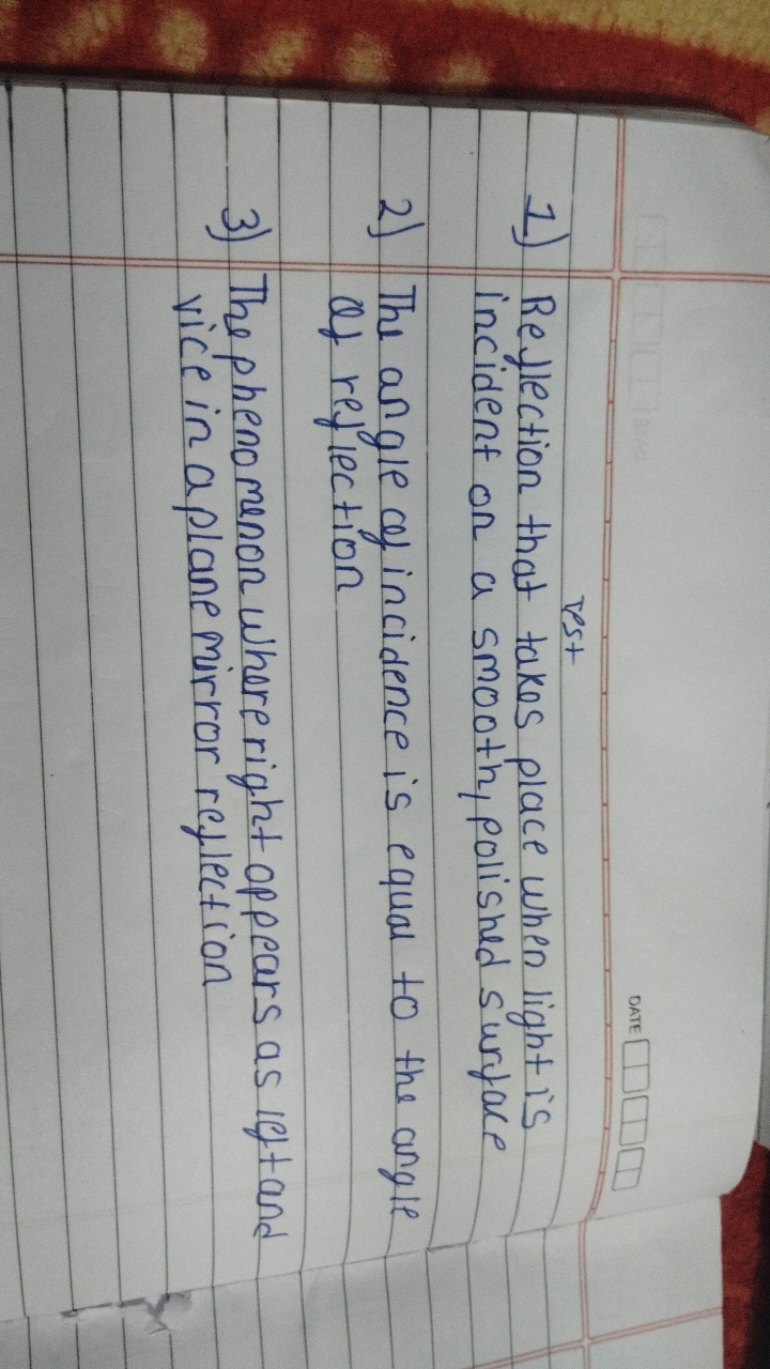 DATE
Test
1) Reflection that takes place when light is
incident on a smooth, polished surface
2) The angle of incidence is equal to the angle
of reflection
3) The phenomenon where right appears as left and
vice in a plane mirror reflection